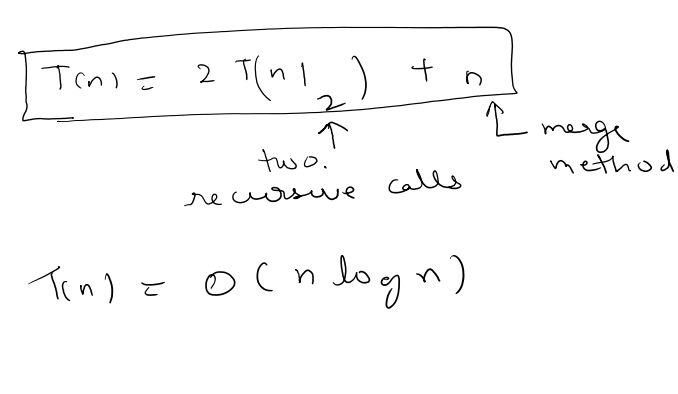 T(n) = 2 T(n/2) + n
two.
recursive calls
merge
method
T(n) = O(n log n)